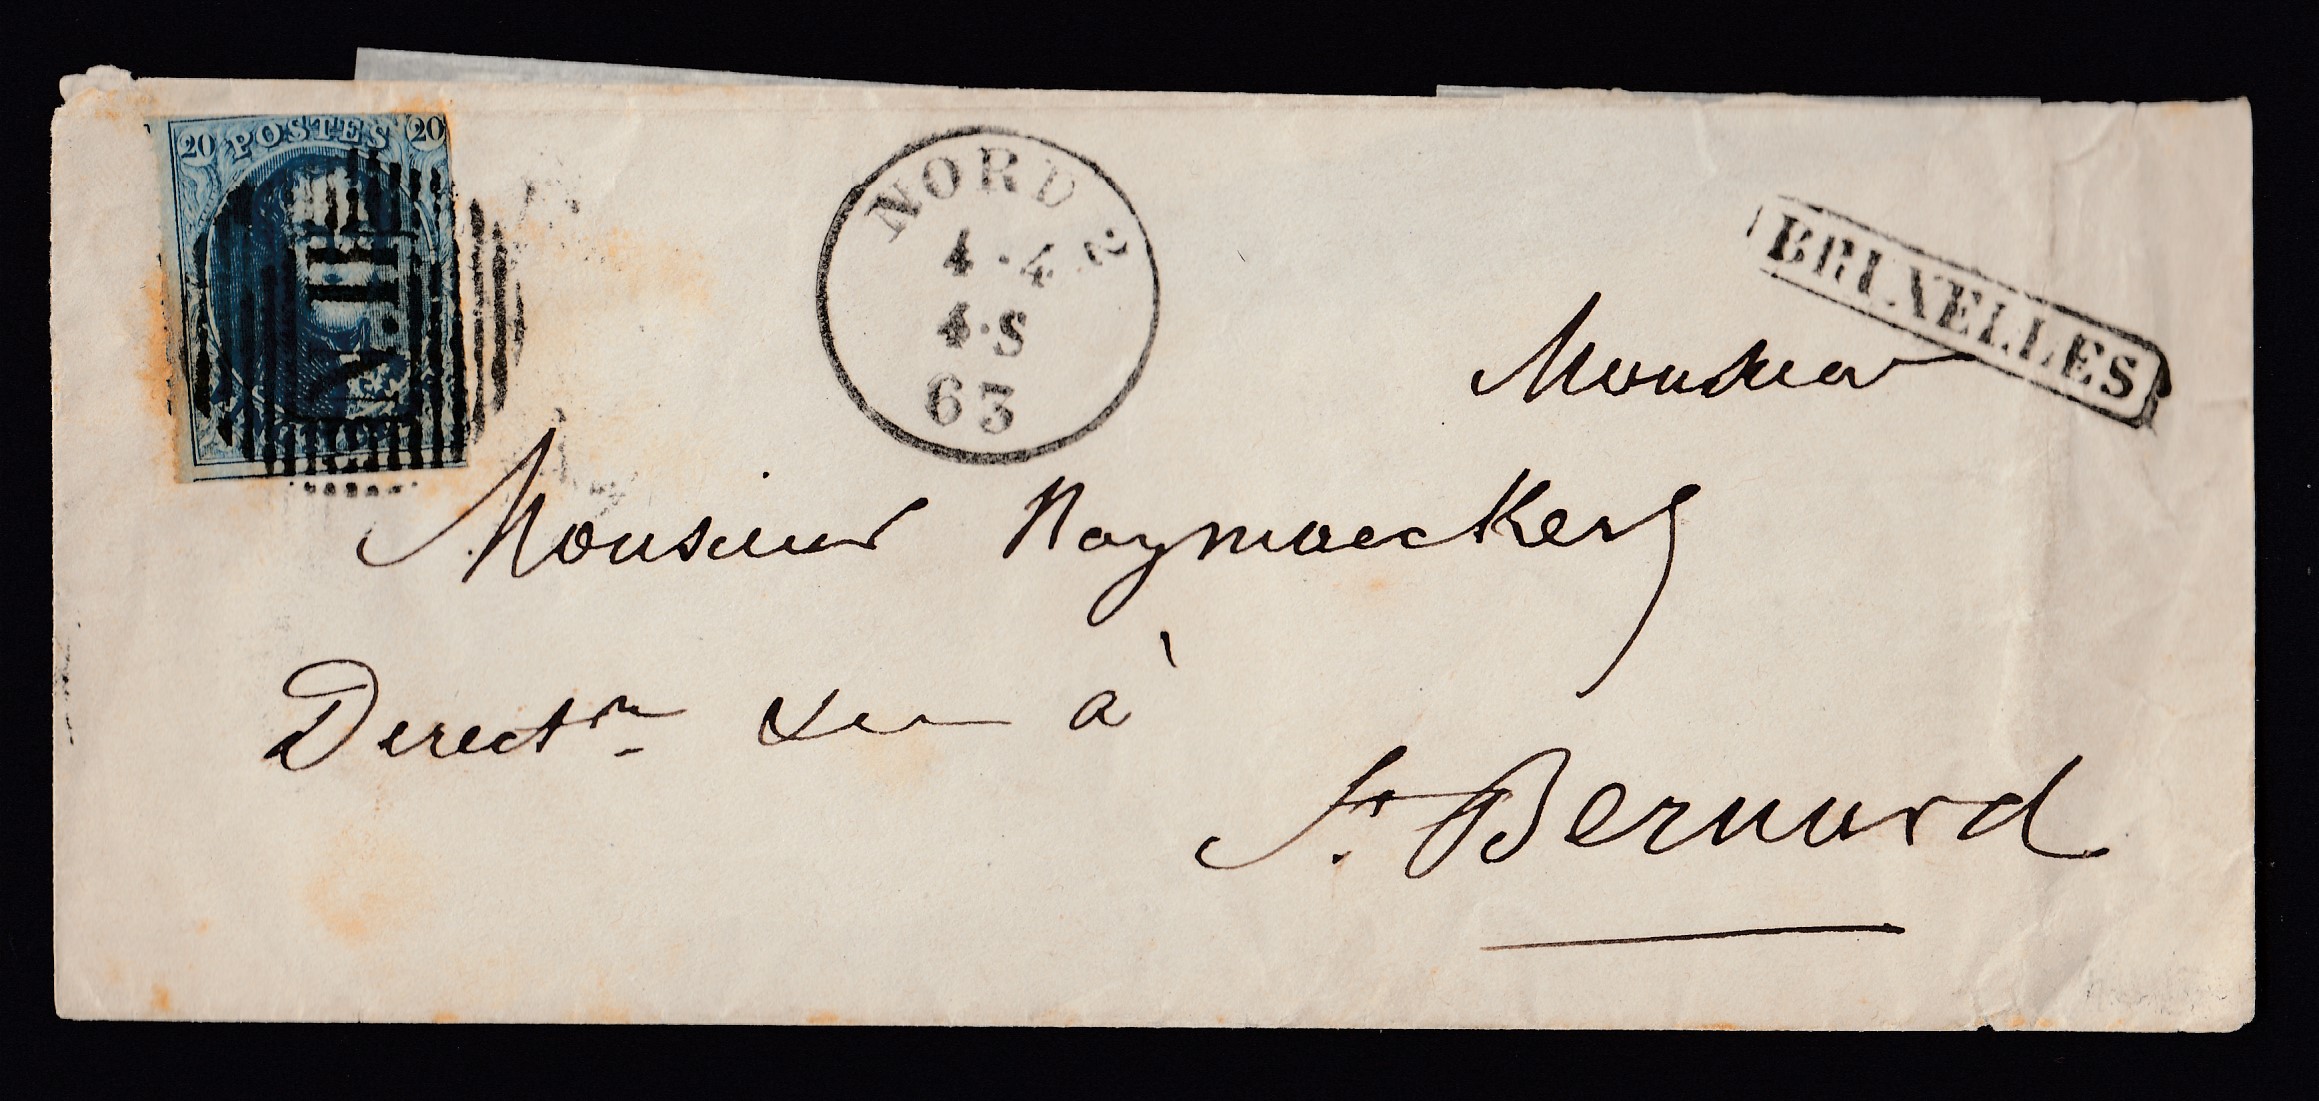 20 POSTES 20
N. II
NORD 2
4 · 4
4 · S
63
BRUXELLES
Monsieur
Monsieur Raymaeckers
Directr à
St. Bernard